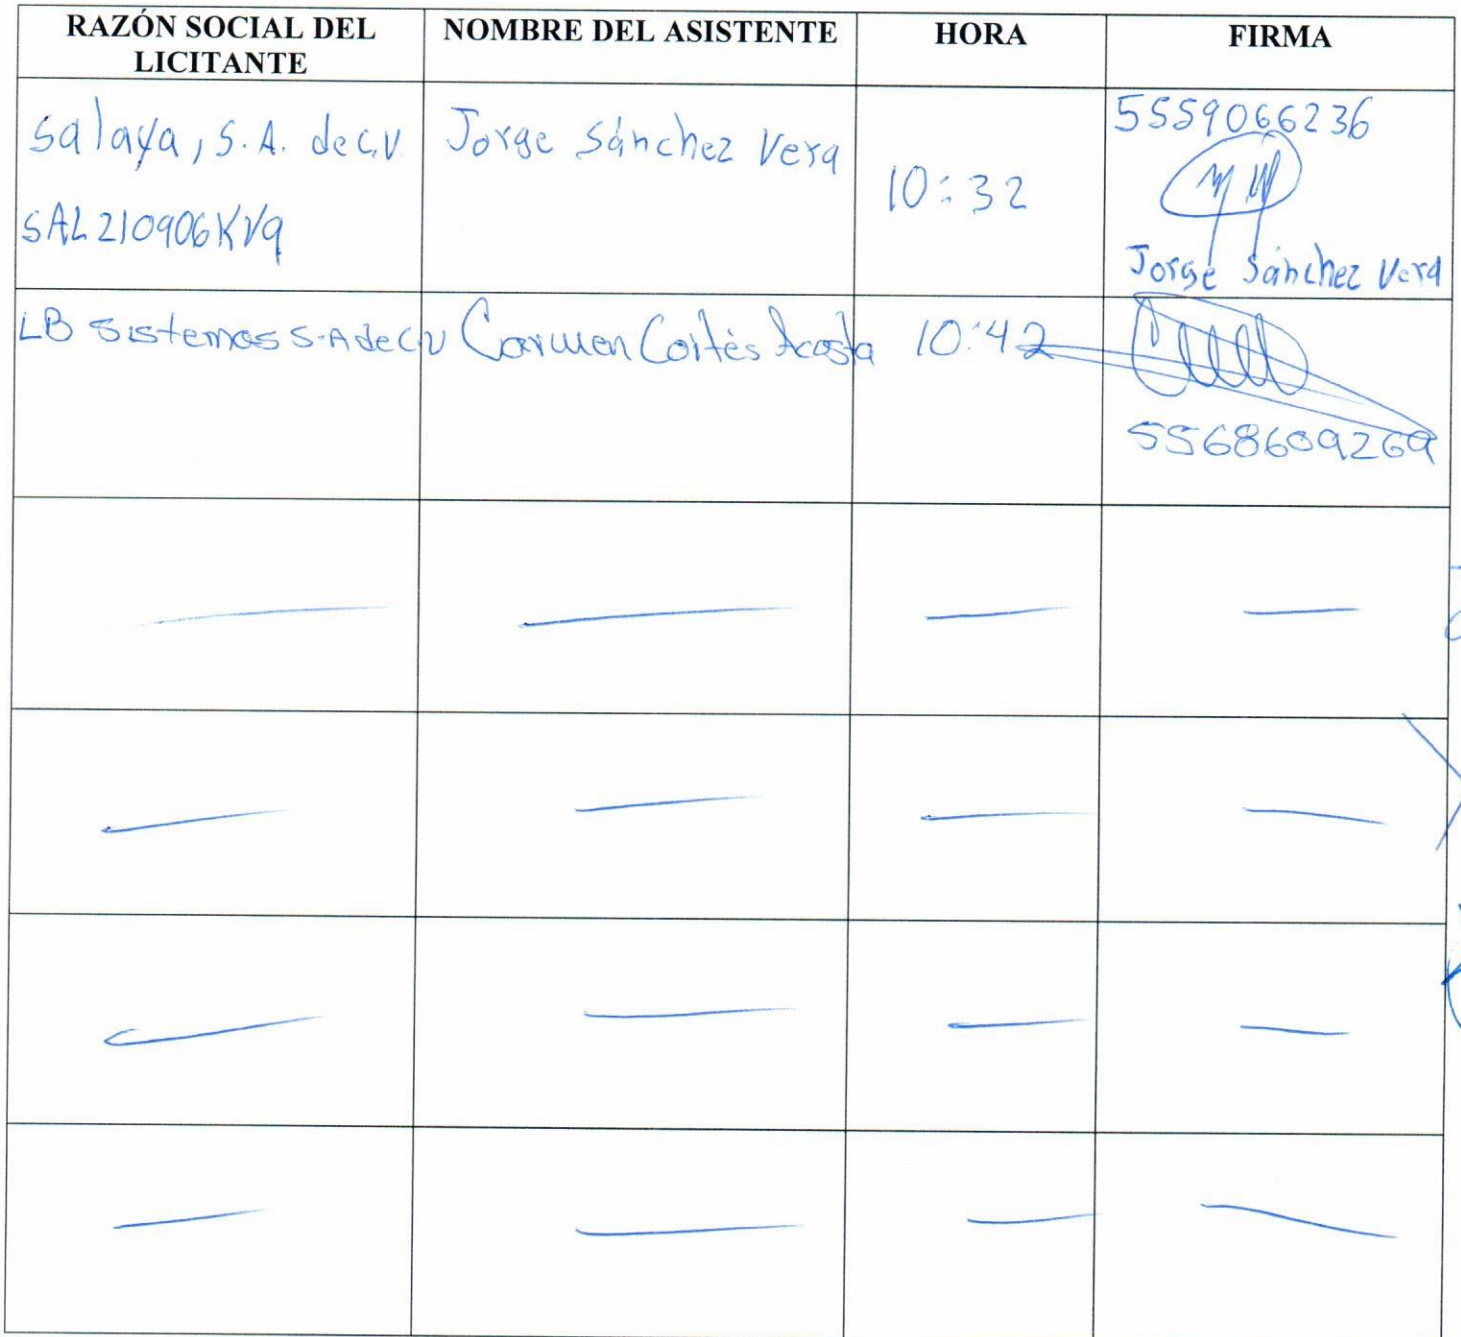 RAZÓN SOCIAL DEL LICITANTE
NOMBRE DEL ASISTENTE
HORA
FIRMA
Salaya, S.A. de C.V.
SAL210906KV9
Jorge Sánchez Vera
10:32
5559066236
Jorge Sánchez Vera
LB Sistemas S.A de C.V
Carmen Cortés Acosta
10:42
5568609269